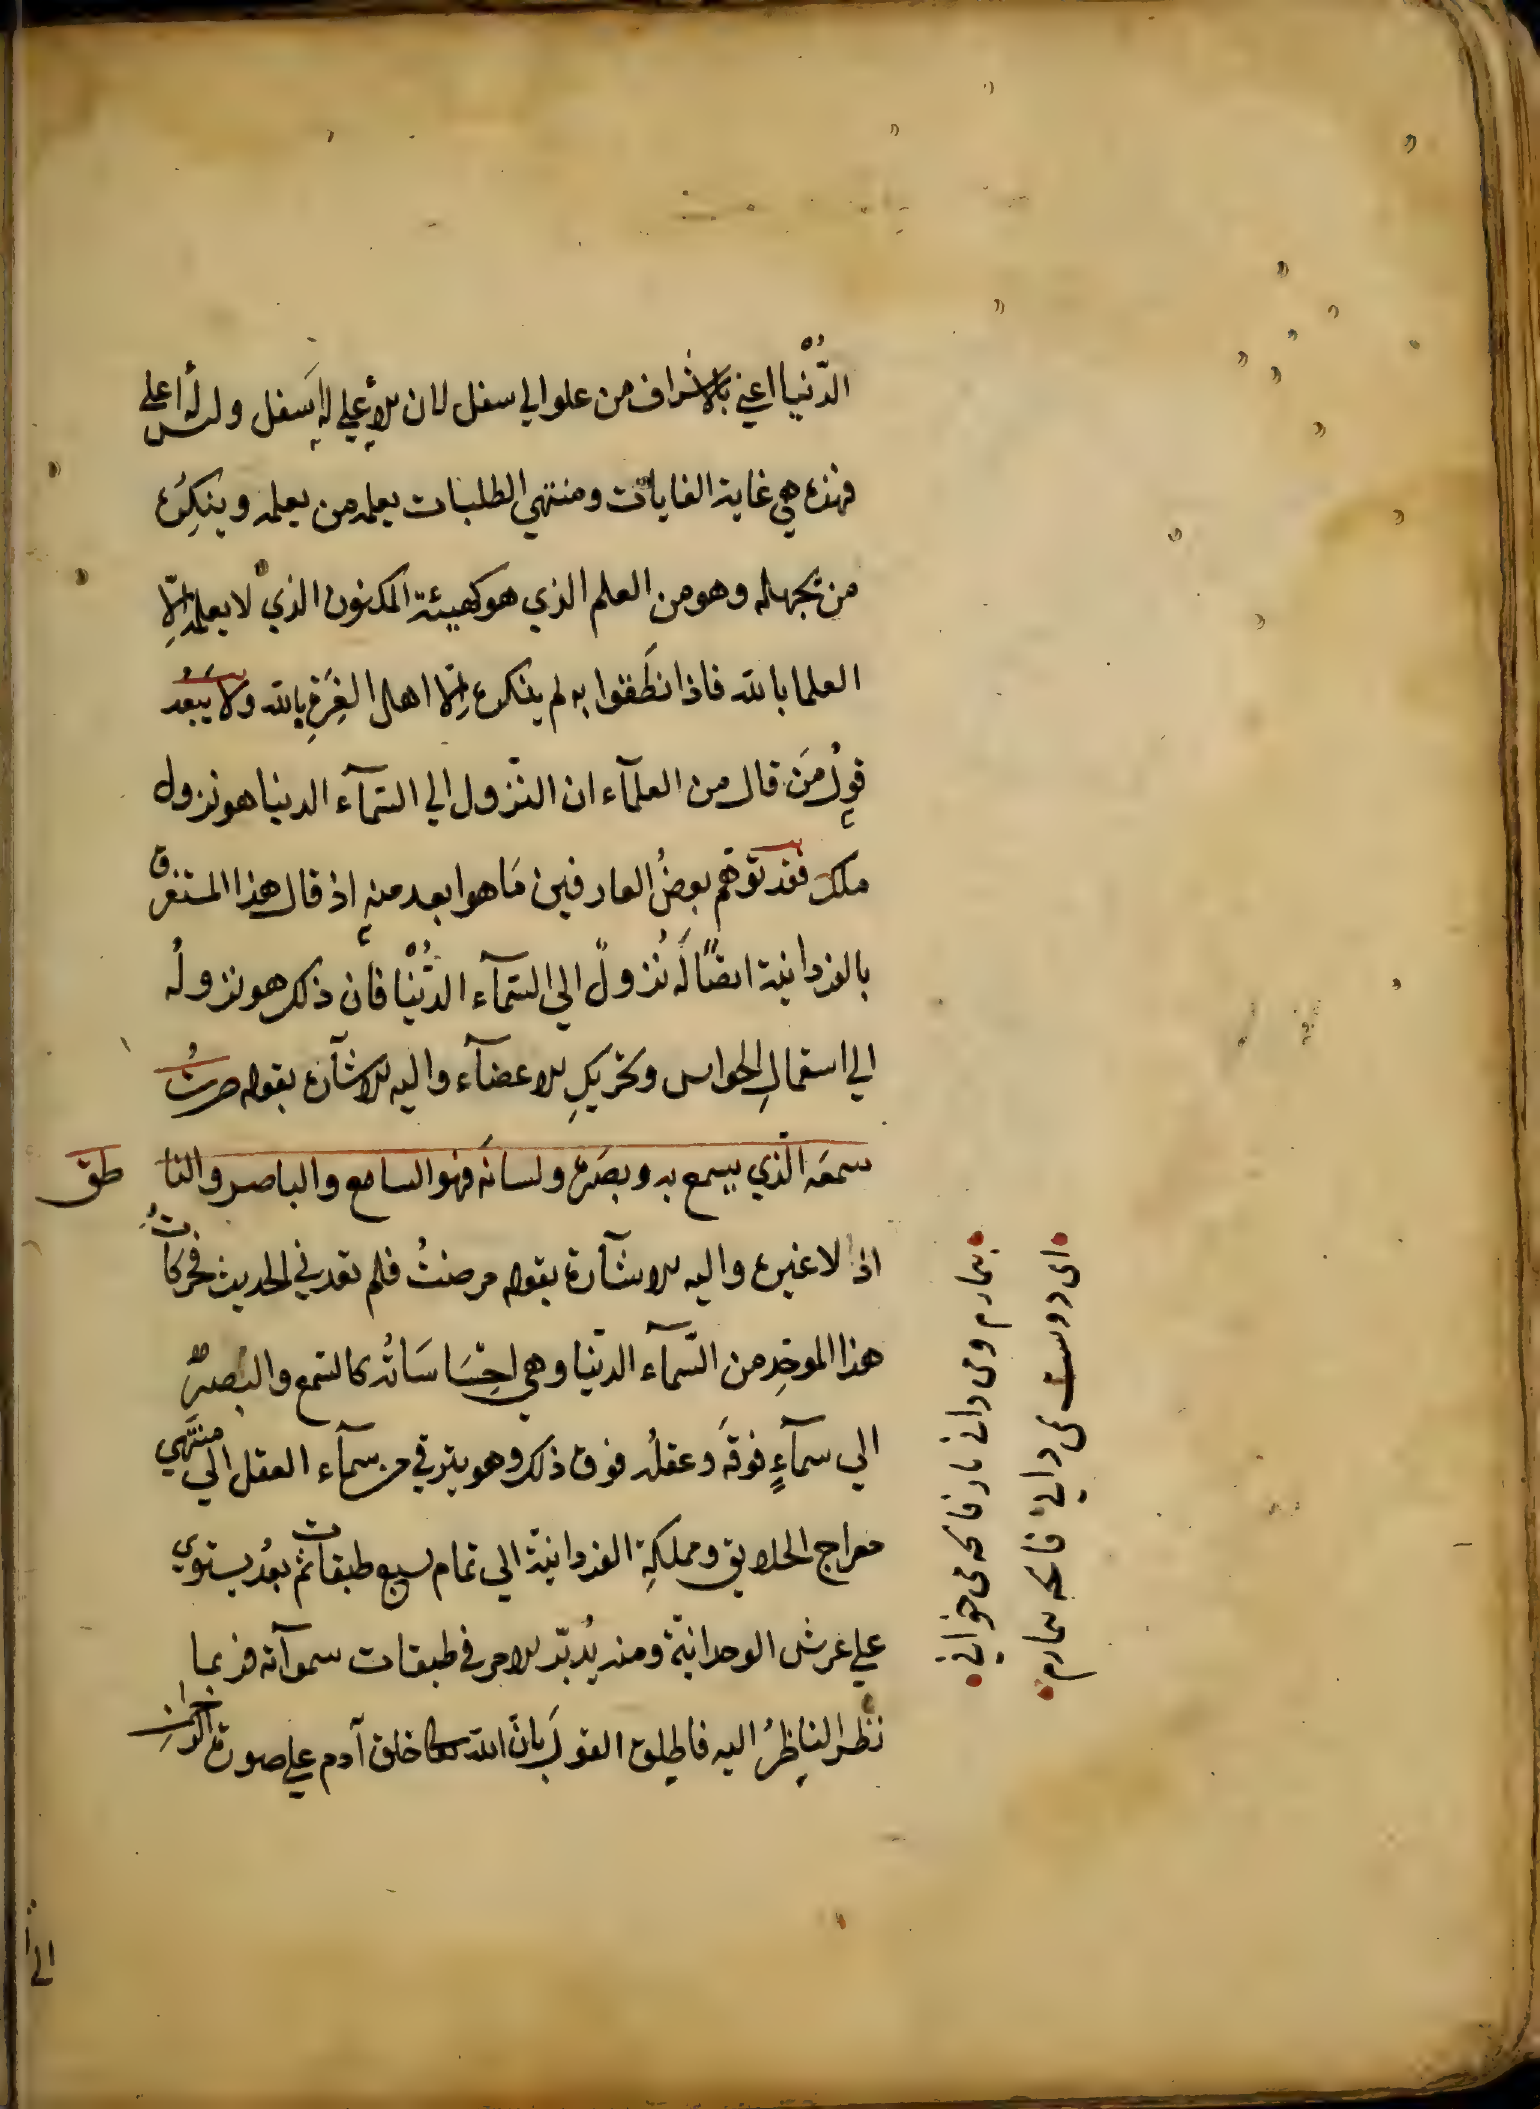 الدُّنْيا اعني بالاشراف من علو الي سفل لان للأعلي له اسفل وليس له اعلي
فهذه هي غاية الغايات ومنتهي الطلبات يعلمه من يعلمه وينكره
من يجهله وهو من العلم الذي هو كهيئة المكنون الذي لا يعلمه إلّا
العلما بالله فاذا نطَقوا به لم ينكره إلّا اهل الغِرَةِ بالله ولا يَبعُد
قول مَن قال من العلمآء ان النّزول الي السّمآء الدنيا هو نزول
ملك فقد توهّم بعضُ العارفين مَا هو ابعد منه اذ قال هذا المستغرق
بالفردانية ايضًا لَه نُزولٌ الي السّمآء الدُّنْيا فان ذلك هو نزولُه
الي استعمالِ الحواس وتحريكِ الاعضآء واليه الاشآرة بقوله صرتُ
سمعَه الّذي يسمع به وبصَره ولسانَه فهو السامع والباصر والناطق
اذاً لا غيره واليه الاشآرة بقوله مرضتُ فلم تعدني الحديث فحركاتُ
هذا الموحّدِ من السّمآء الدّنيا وهي احْسَاسَاتُه كالسّمع والبصر
الي سمآءٍ فوقَه وعقلُه فوق ذلك وهو يترقي من سمآء العقل الي منتَهي
معراج الخلايق ومملكةِ الفردانيّة الي تمام سبع طبقات ثم بعدُ يستوي
علي عرش الوحدانيّة ومنه يُدبّر الامر في طبقات سموآته فربما
نظر الناظِرُ اليه فاطلق القول بَان الله تعالي خلق آدم علي صورة الرحمن
ای دوست می دانی فاتحه بیمارم
بیمارم و می دانی فاتحه می خوانی
الي